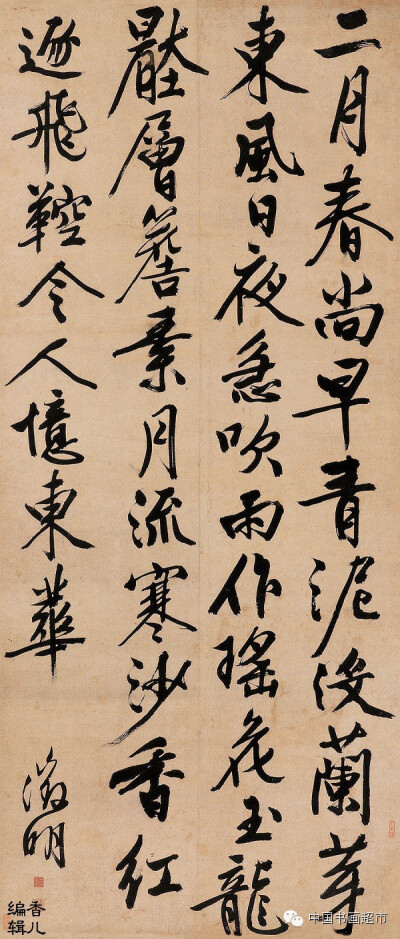 二月春尚早青泥没蘭芽
東風日夜急吹雨作瑤花玉龍
壓層簷素月流寒沙香紅
逐飛鞚令人憶東華
徵明
香儿
编辑
中国书画超市